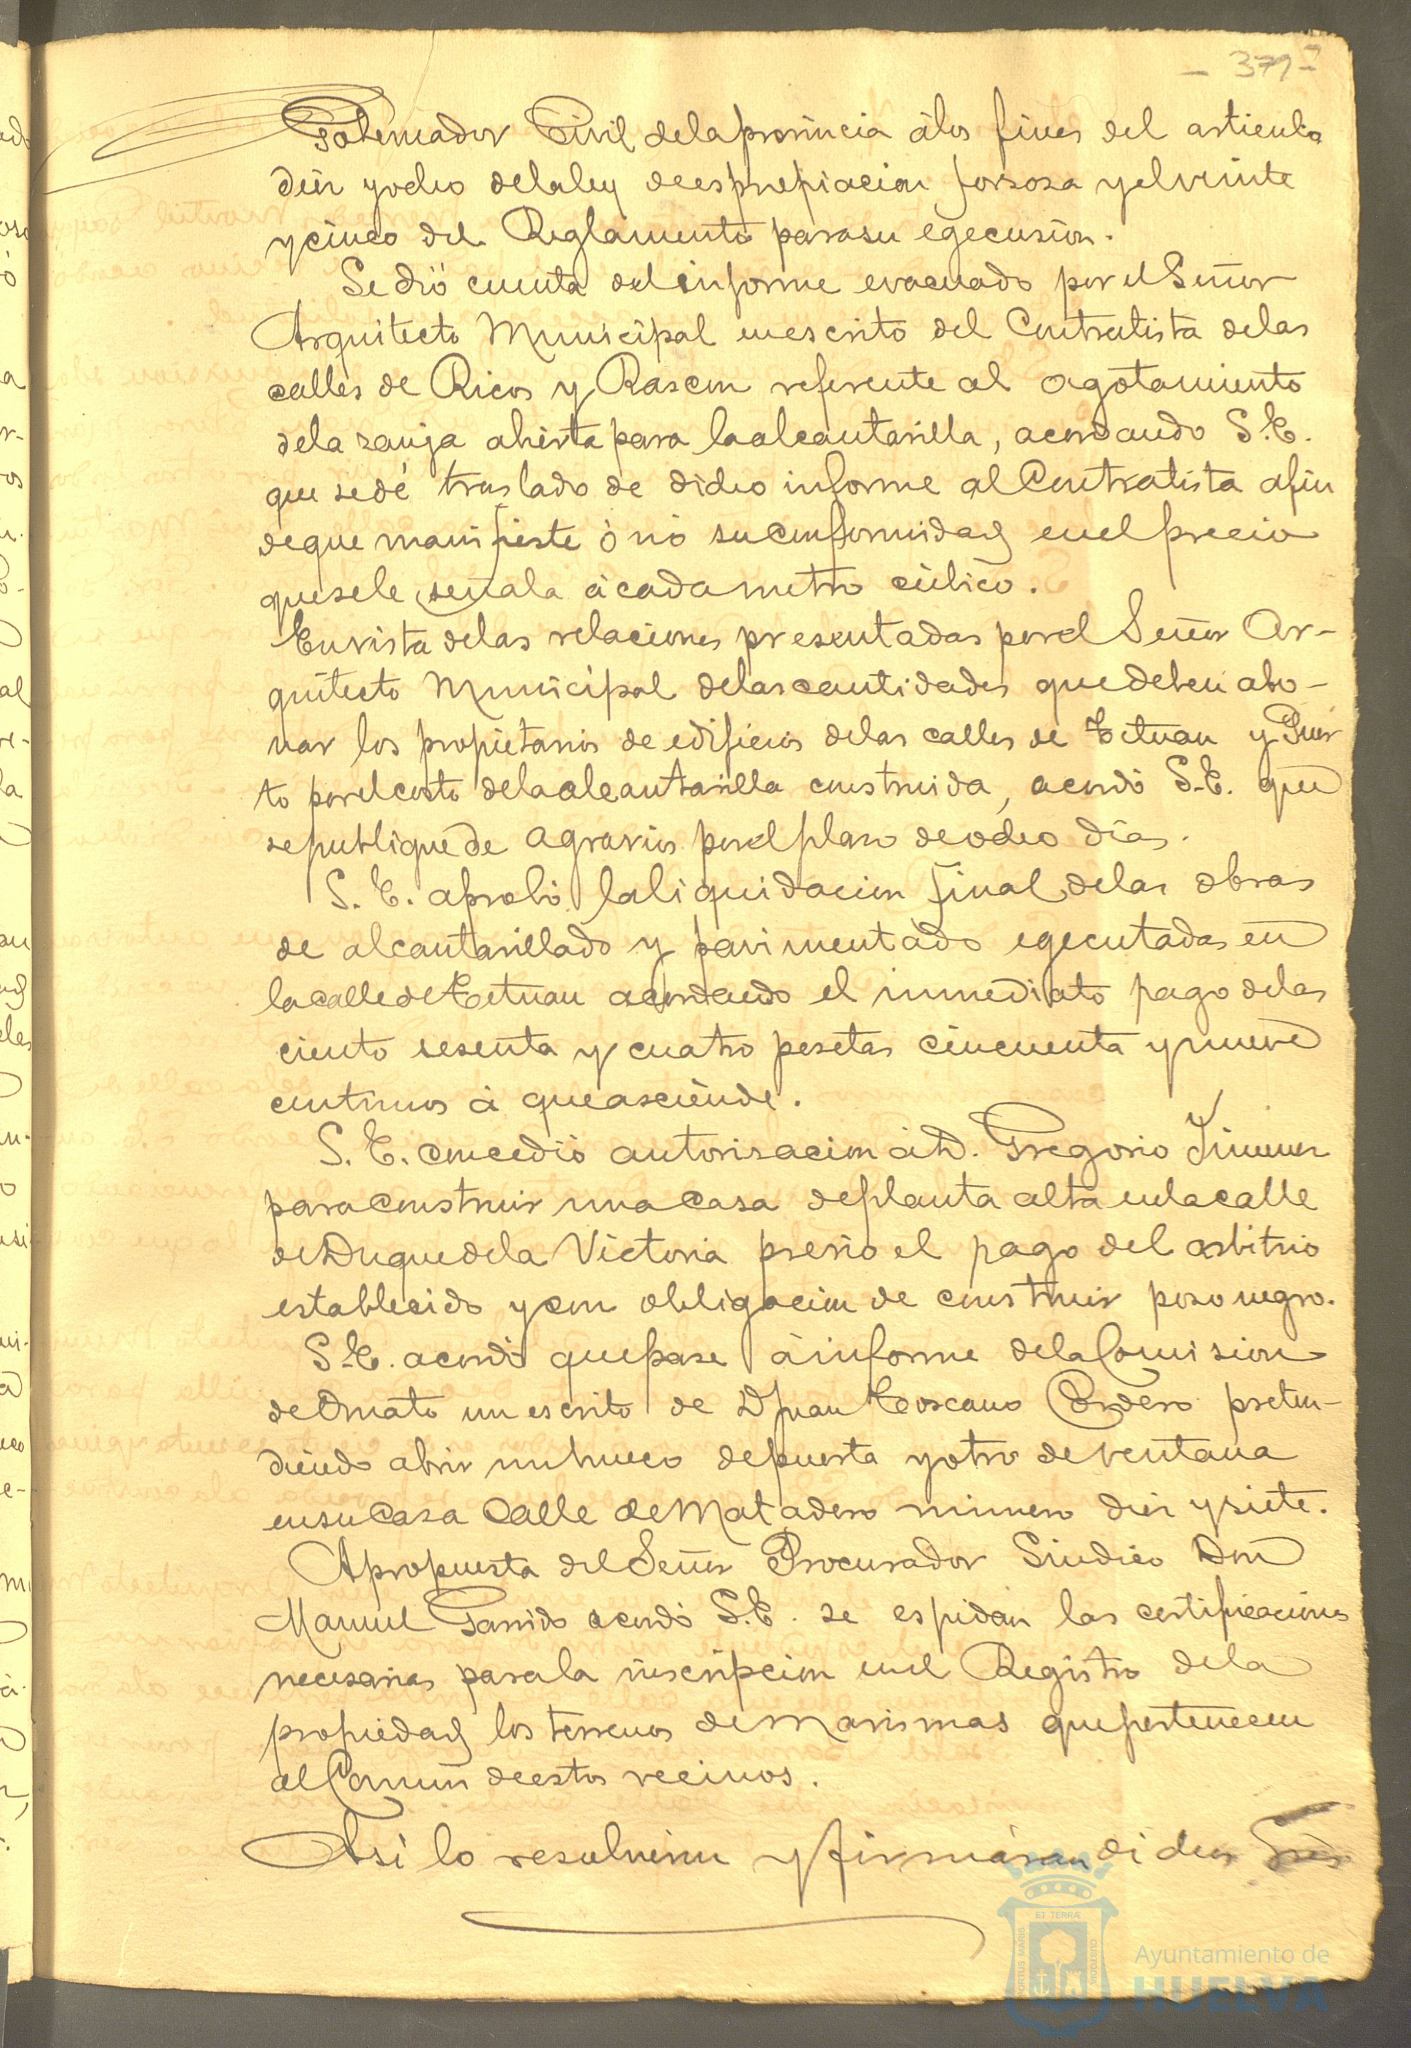 - 379 -
Gobernador Civil dela provincia álos fines del articulo
diez y ocho dela ley de espropiacion forsosa y el veinte
y cinco del Reglamento para su egecusion.
Se dió cuenta del informe evacuado por el Señor
Arquitecto Municipal en escrito del Contratista delas
calles de Ricos y Rascon referente al agotamiento
dela zanja abierta para la alcantarilla, acordando S.E.
que se dé traslado de dicho informe al Contratista afin
de que manifieste ó nó su conformidad en el precio
que se le señala á cada metro cúbico.
En vista delas relaciones presentadas por el Señor Ar-
quitecto Municipal delas cantidades que deben abo-
nar los propietarios de edificios delas calles de Tetuan y Puer
to por el costo dela alcantarilla construida, acordó S.E. que
se publique de agravios por el plazo de ocho días.
S. E. aprobó la liquidacion final delas obras
de alcantarillado y pavimentado egecutadas en
la calle de Tetuan acordando el inmediato pago delas
ciento sesenta y cuatro pesetas cincuenta y nueve
centimos á que asciende.
S. E. concedió autorizacion á D. Gregorio Jimenez
para construir una casa de planta alta en la calle
de Duque dela Victoria previo el pago del arbitrio
establecido y con obligacion de construir pozo negro.
S.E. acordó que pase á informe dela Comision
de Ornato un escrito de D Juan Toscano Cordero preten-
diendo abrir un hueco de puerta y otro de ventana
en su casa calle de Matadero número diez y siete.
A propuesta del Señor Procurador Sindico Don
Manuel Garrido acordó S.E. se espidan las certificaciones
necesarias para la inscripcion en el Registro dela
propiedad los terrenos de Marismas que pertenecen
al Comun de estos vecinos.
Asi lo resolvieron y firmáran dichos Sres
ET TERRÆ
PORTUS MARIS
CUSTODIA
Ayuntamiento de
HUELVA